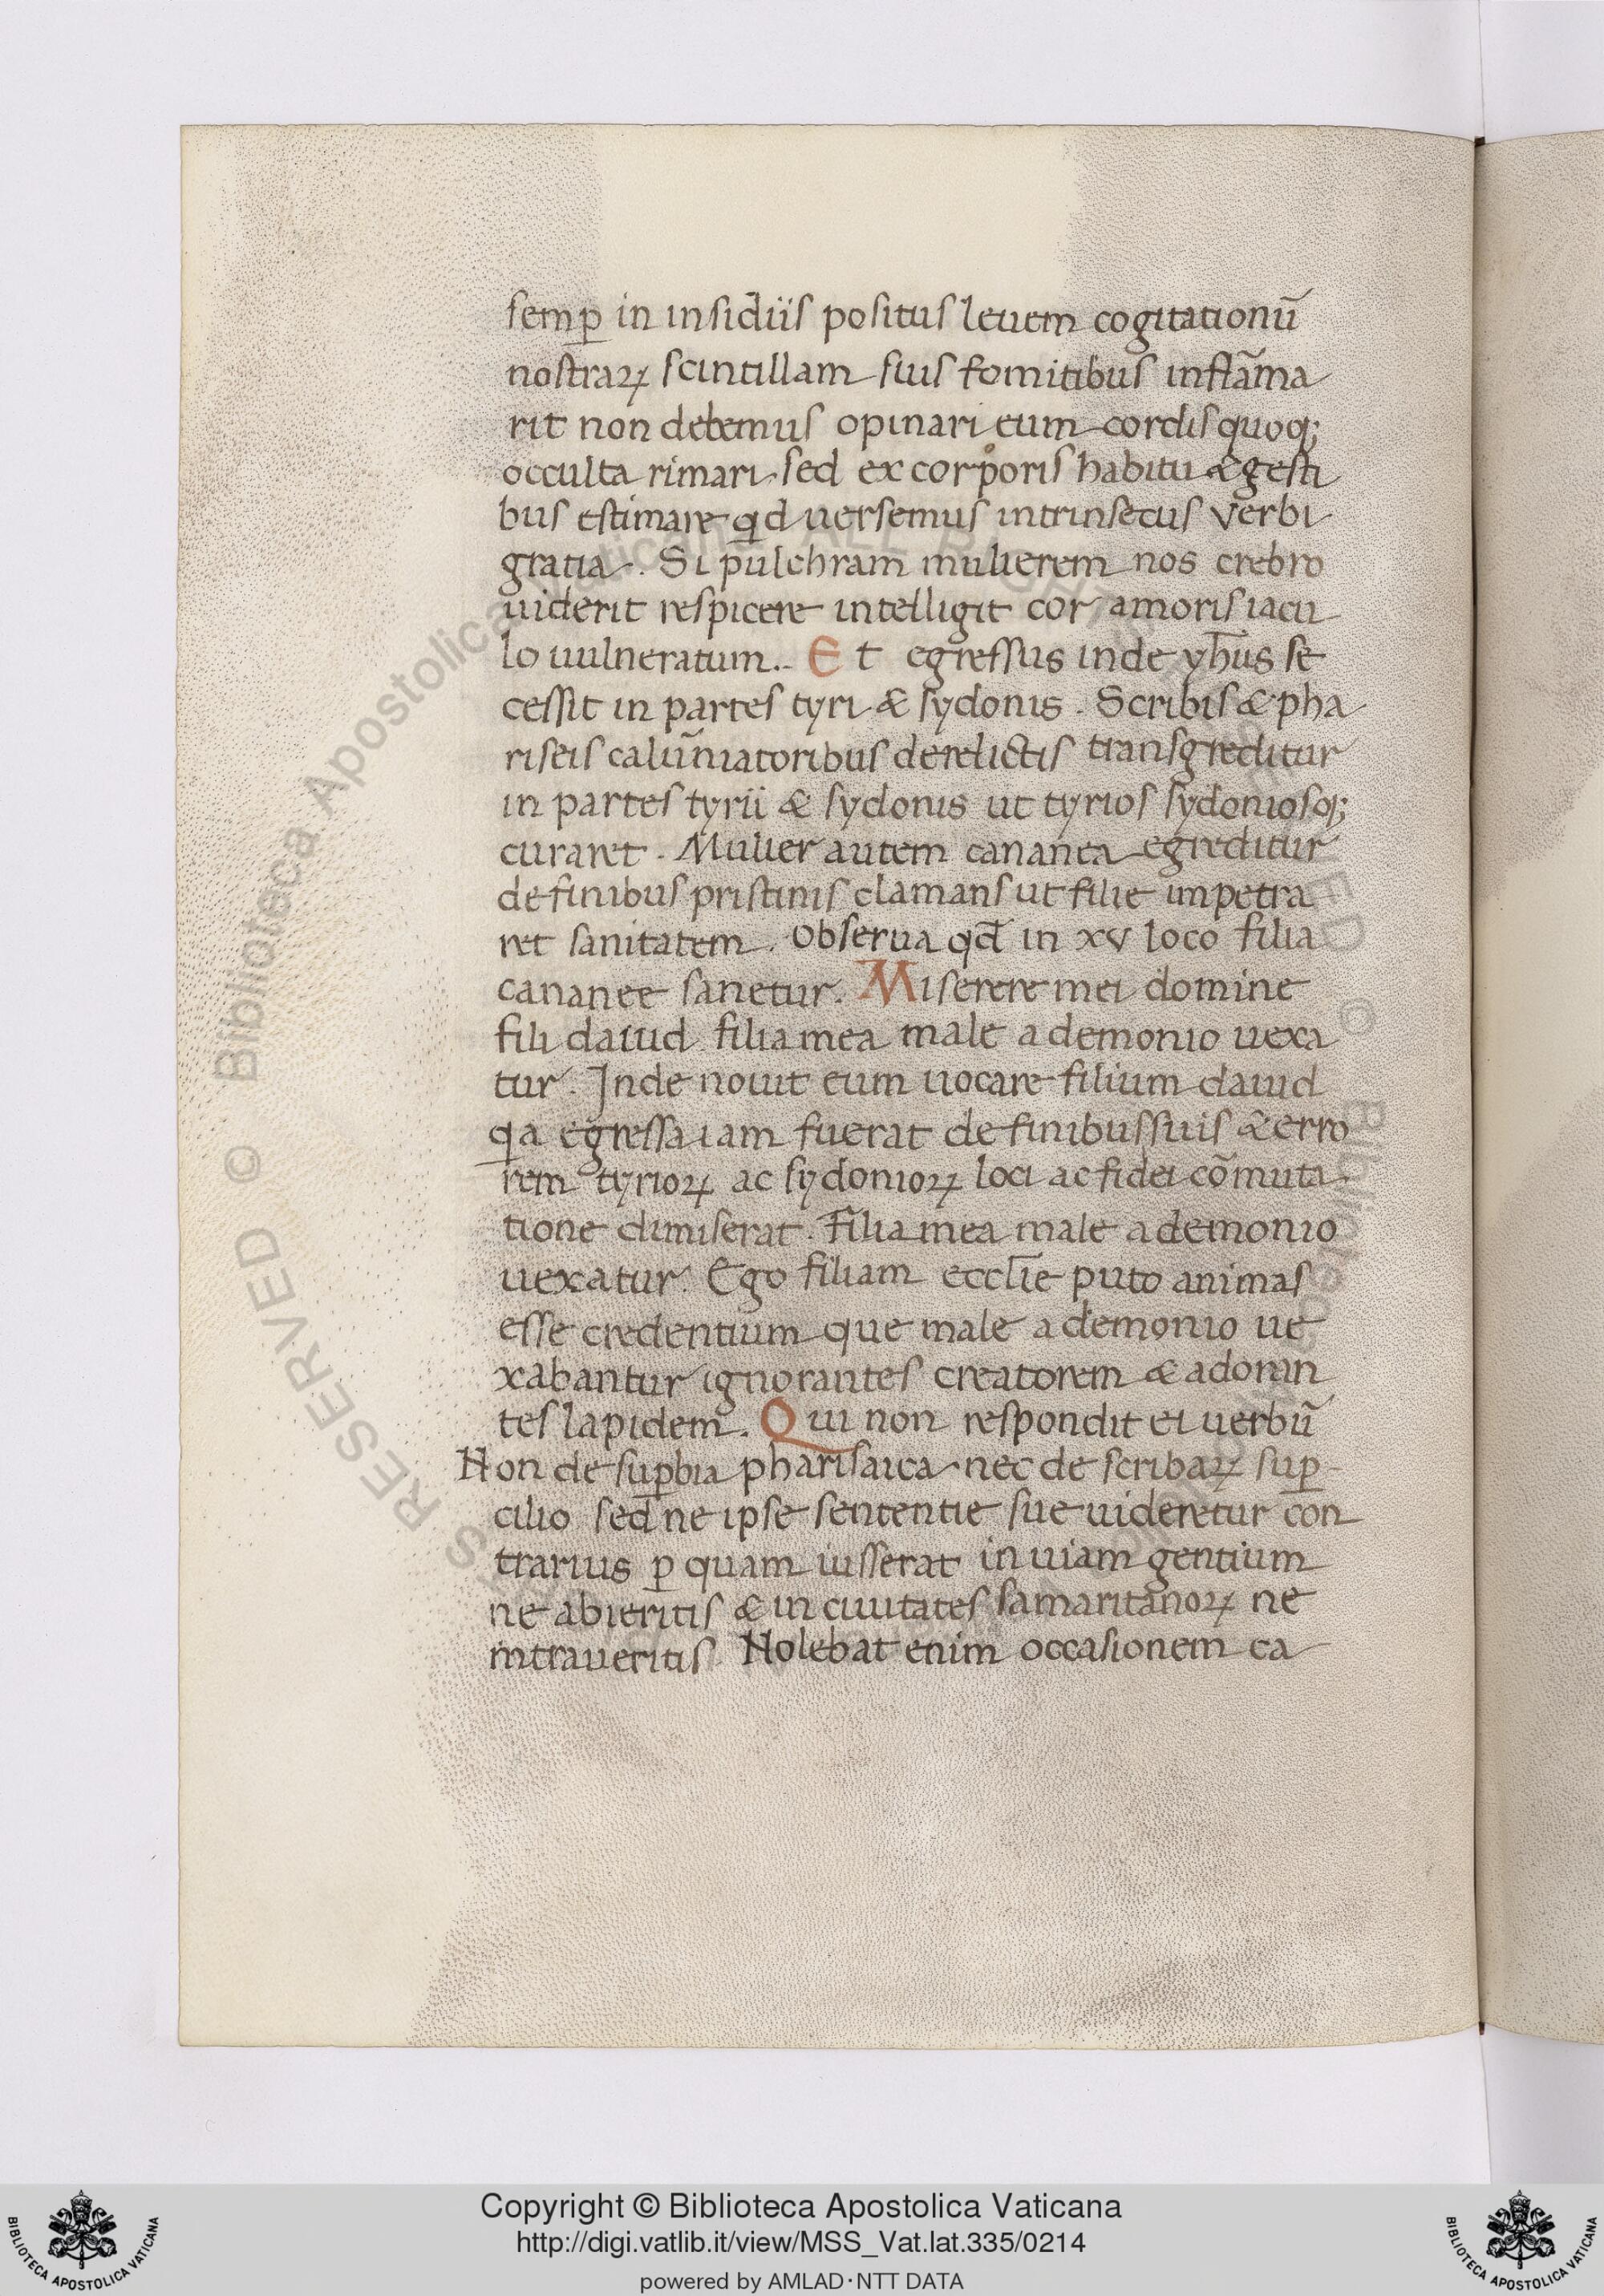 semꝑ in insidiis positus leuem cogitationū
nostraꝝ scintillam suis fomitibus inflāma
rit non debemus opinari eum cordis quoqꝫ
occulta rimari sed ex corporis habitu & gesti
bus estimare qd uersemus intrinsecus verbi
gratia. Si pulchram mulierem nos crebro
uiderit respicere intelligit cor amoris iacu
lo uulneratum. Et egressus inde yh̄us se
cessit in partes tyri & sydonis. Scribis & pha
riseis calūniatoribus derelictis transgreditur
in partes tyrii & sydonis ut tyrios sydoniosqꝫ
curaret. Mulier autem cananea egreditur
de finibus pristinis clamans ut filie impetra
ret sanitatem. Obserua qd̄ in xv loco filia
cananee sanetur. Miserere mei domine
fili dauid filia mea male a demonio uexa
tur. Inde nouit eum uocare filium dauid
qa egressa iam fuerat de finibus suis & erro
rem tyrioꝝ ac sydonioꝝ loci ac fidei cōmuta
tione dimiserat. Filia mea male a demonio
uexatur. Ego filiam eccl̄ie puto animas
esse credentium que male a demonio ue
xabantur ignorantes creatorem & adoran
tes lapidem. Qui non respondit ei uerbū
Non de suꝑbia pharisaica nec de scribaꝝ suꝑ
cilio sed ne ipse sententie sue uideretur con
trarius ꝑ quam iusserat in uiam gentium
ne abieritis & in ciuitates samaritanoꝝ ne
intraueritis. Nolebat enim occasionem ca
© Biblioteca Apostolica Vaticana
Copyright © Biblioteca Apostolica Vaticana
http://digi.vatlib.it/view/MSS_Vat.lat.335/0214
powered by AMLAD·NTT DATA
BIBLIOTECA APOSTOLICA VATICANA
BIBLIOTECA APOSTOLICA VATICANA